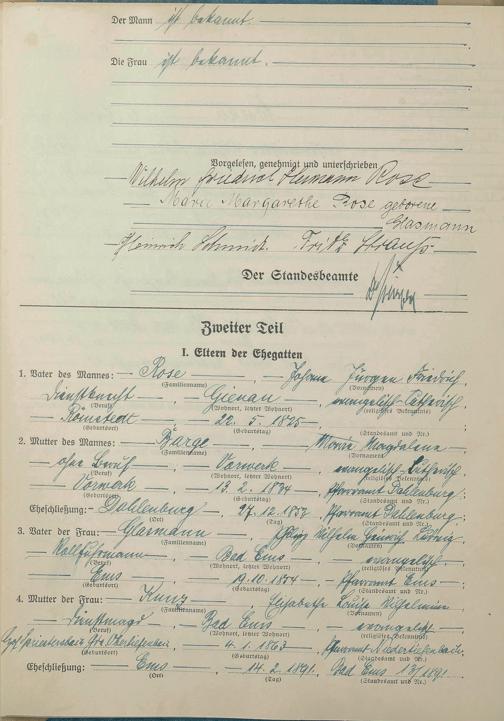 Der Mann ist bekannt.
Die Frau ist bekannt.
Vorgelesen, genehmigt und unterschrieben
Wilhelm Friedrich Hermann Rose
Marie Margarethe Rose geborene
Glasmann
Heinrich Schmidt. Fritz Strauß.
Der Standesbeamte
Zweiter Teil
I. Eltern der Ehegatten
1. Vater des Mannes: Rose, Johann Jürgen Friedrich,
(Familienname) (Vornamen)
Dienstknecht, Gienau, evangelisch-lutherisch,
(Beruf) (Wohnort, letzter Wohnort) (religiöses Bekenntnis)
22. 5. 1825
(Geburtsort) (Geburtstag) (Standesamt und Nr.)
2. Mutter des Mannes: Marie Magdalena
(Familienname) (Vornamen)
ohne Beruf, Vorwerk, evangelisch-lutherisch
(Beruf) (Wohnort, letzter Wohnort) (religiöses Bekenntnis)
Vorwerk, Pfarramt Dahlenburg;
(Geburtsort) (Geburtstag) (Standesamt und Nr.)
Eheschließung: Dahlenburg, 12. Pfarramt Dahlenburg.
(Ort) (Tag) (Standesamt und Nr.)
3. Vater der Frau: Glasmann, Wilhelm Heinrich Ludwig
(Familienname) (Vornamen)
Bad Ems, evangelisch
(Beruf) (Wohnort, letzter Wohnort) (religiöses Bekenntnis)
Ems, 19. 10. Pfarramt Ems;
(Geburtsort) (Geburtstag) (Standesamt und Nr.)
4. Mutter der Frau: Kunz, Elisabethe Louise Wilhelmine
(Familienname) (Vornamen)
Dienstmagd, Bad Ems, evangelisch
(Beruf) (Wohnort, letzter Wohnort) (religiöses Bekenntnis)
4. 1. 1863, Pfarramt Niedertiefenbach;
(Geburtsort) (Geburtstag) (Standesamt und Nr.)
Eheschließung: Ems, 14. 2. 1891, Bad Ems 13/1891.
(Ort) (Tag) (Standesamt und Nr.)